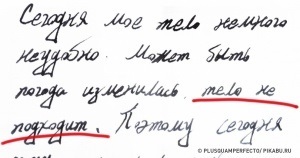 Сегодня мое тело немного
неудобно. Может быть
погода изменилась. тело не
подходит. Поэтому сегодня
© PLUSQUAMPERFECTO/ PIKABU.RU